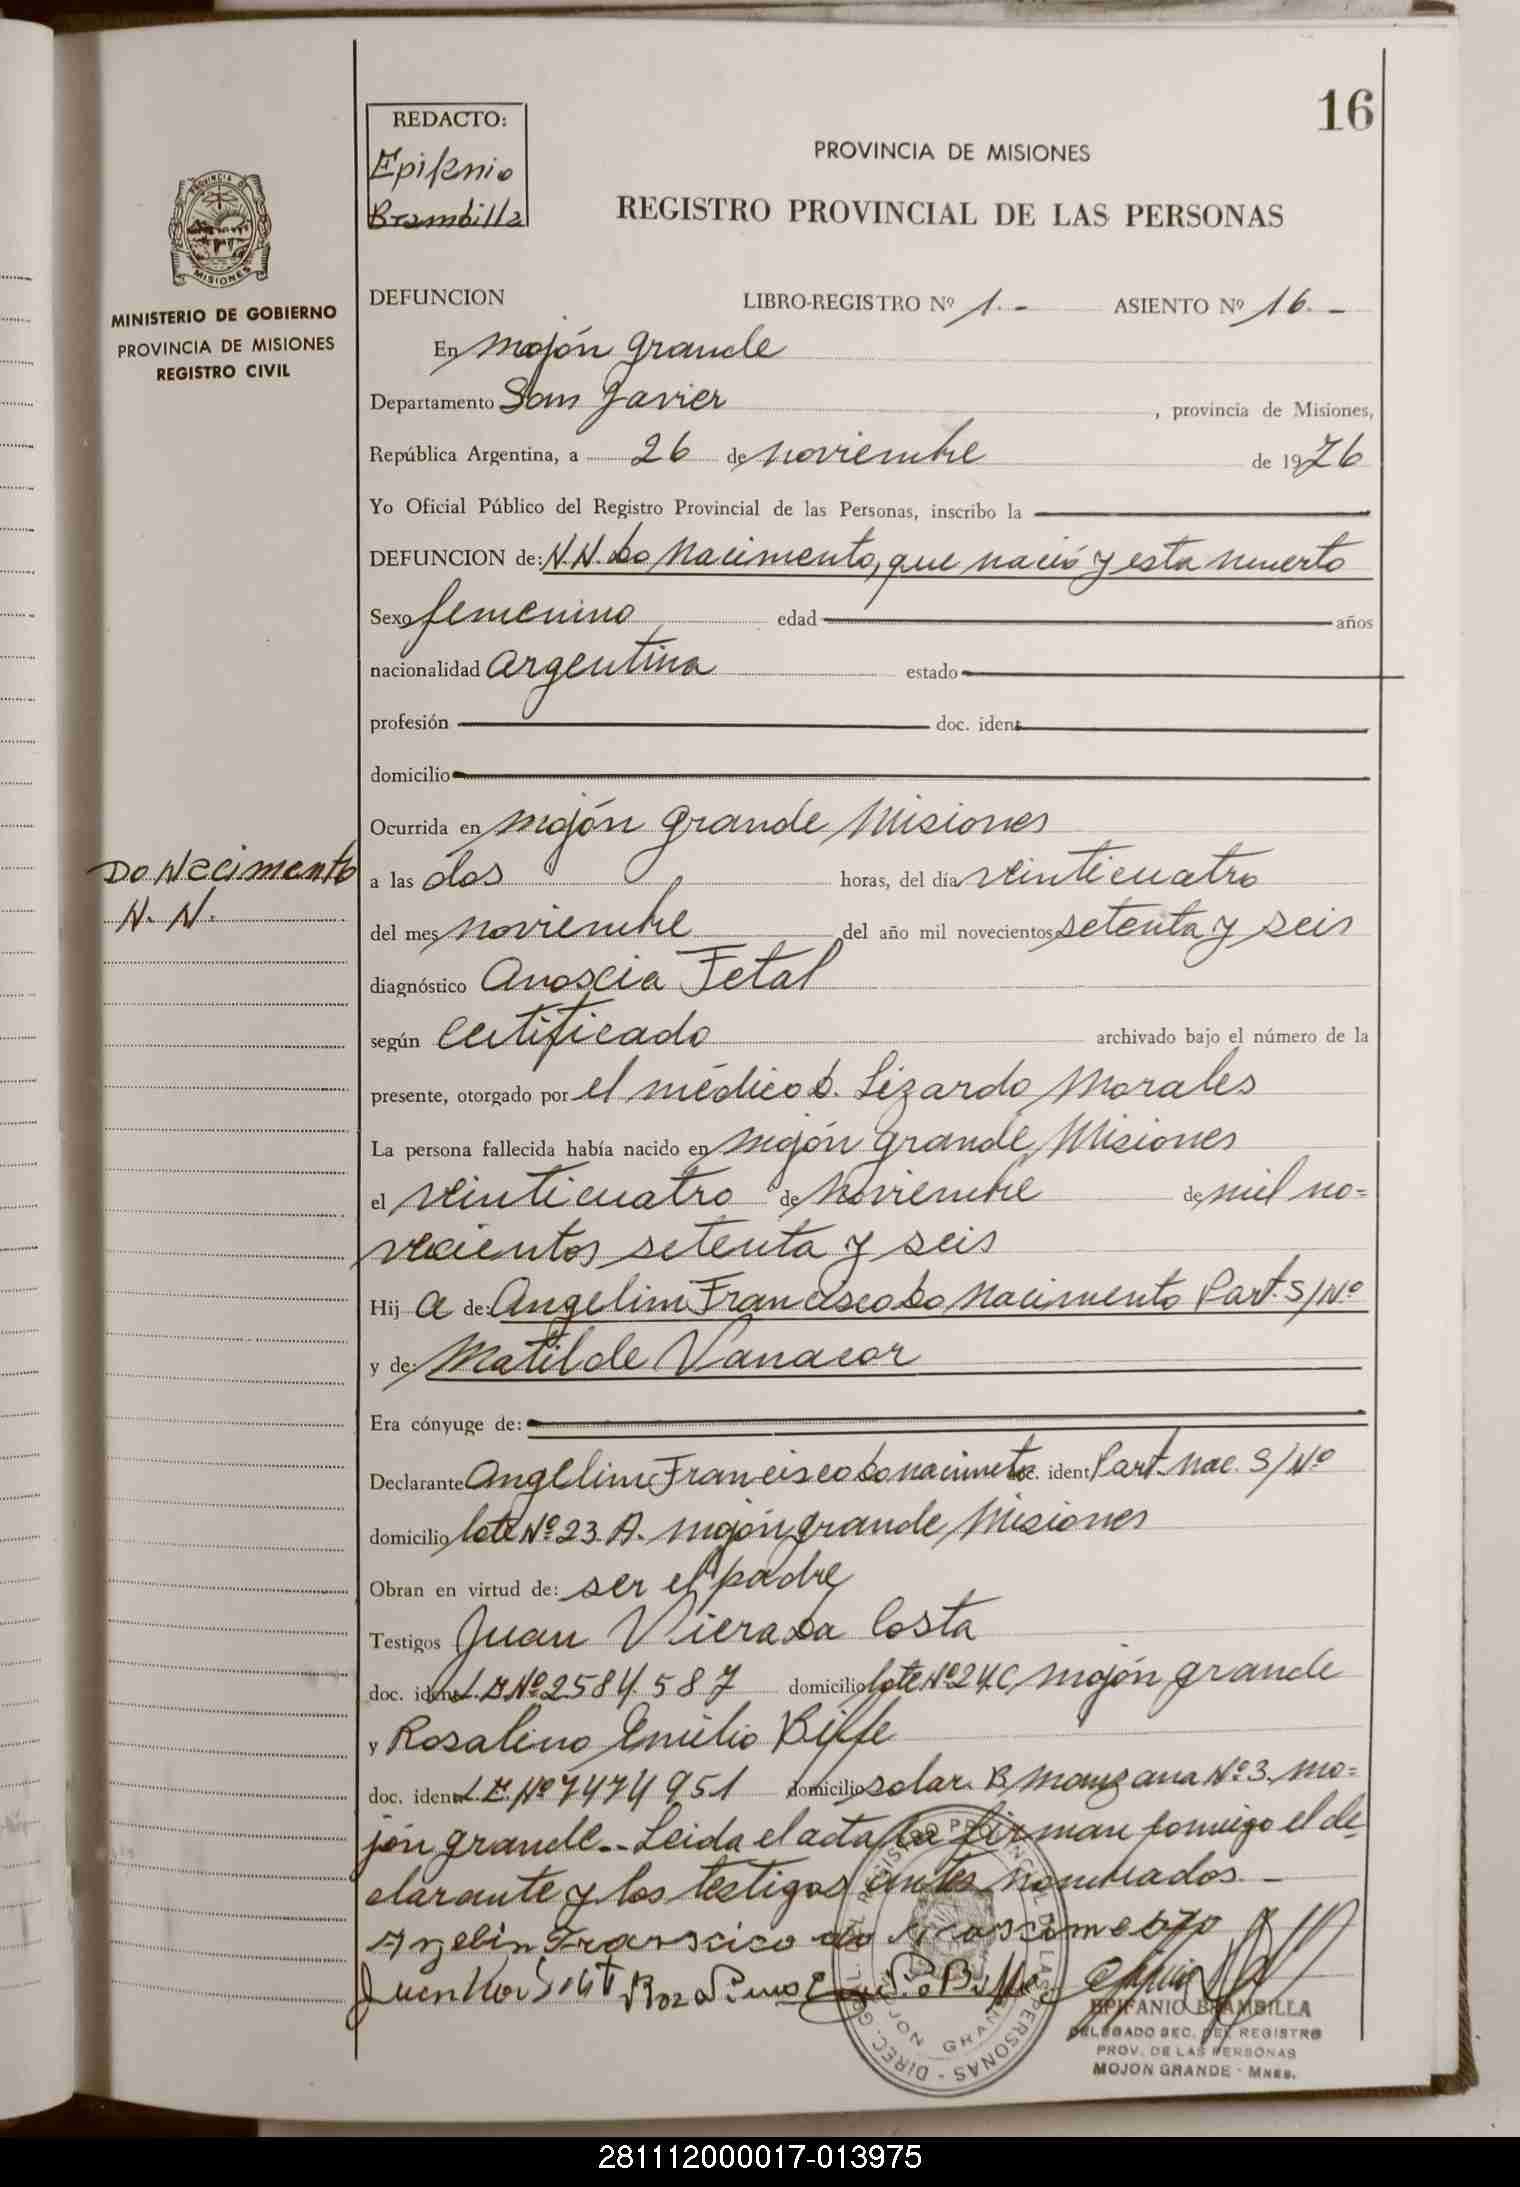 16
REDACTO:
Epifanio
Brambilla
PROVINCIA DE MISIONES
REGISTRO PROVINCIAL DE LAS PERSONAS
PROVINCIA DE
MISIONES
MINISTERIO DE GOBIERNO
PROVINCIA DE MISIONES
REGISTRO CIVIL
DEFUNCION LIBRO-REGISTRO Nº 1.- ASIENTO Nº 16.-
En Mojón grande
Departamento San Javier, provincia de Misiones,
República Argentina, a 26 de noviembre de 1976
Yo Oficial Público del Registro Provincial de las Personas, inscribo la
DEFUNCION de: N.N. do Nacimento, que nació y esta muerto
Sexo femenino edad años
nacionalidad argentina estado
profesión doc. ident.
domicilio
Ocurrida en Mojón grande Misiones
Do Nacimento
N. N.
a las dos horas, del día veinticuatro
del mes noviembre del año mil novecientos setenta y seis
diagnóstico Anoxcia Fetal
según certificado archivado bajo el número de la
presente, otorgado por el médico D. Lizardo Morales
La persona fallecida había nacido en Mojón grande, Misiones
el veinticuatro de noviembre de mil no=
vecientos setenta y seis
Hij a de: Angelim Francisco do Nacimento Part. S/Nº
y de: Matilde Vanacor
Era cónyuge de:
Declarante Angelim Francisco do nacimeto doc. ident Part. Nac. S/Nº
domicilio lote Nº 23 A. Mojón grande, Misiones
Obran en virtud de: ser el padre
Testigos Juan Viera da Costa
doc. ident L.E Nº 2584.587 domicilio lote Nº 24C Mojón grande
y Rosalino Emilio Biffe
doc. ident L.E. Nº 7474951 domicilio solar B manzana Nº3. Mo=
jón grande.- Leida el acta la firman conmigo el de
clarante y los testigos antes nombrados.-
Angelin Franscico do Nascimento
EPIFANIO BRAMBILLA
DELEGADO SEC. DEL REGISTRO
PROV. DE LAS PERSONAS
MOJON GRANDE - MNES.
281112000017-013975